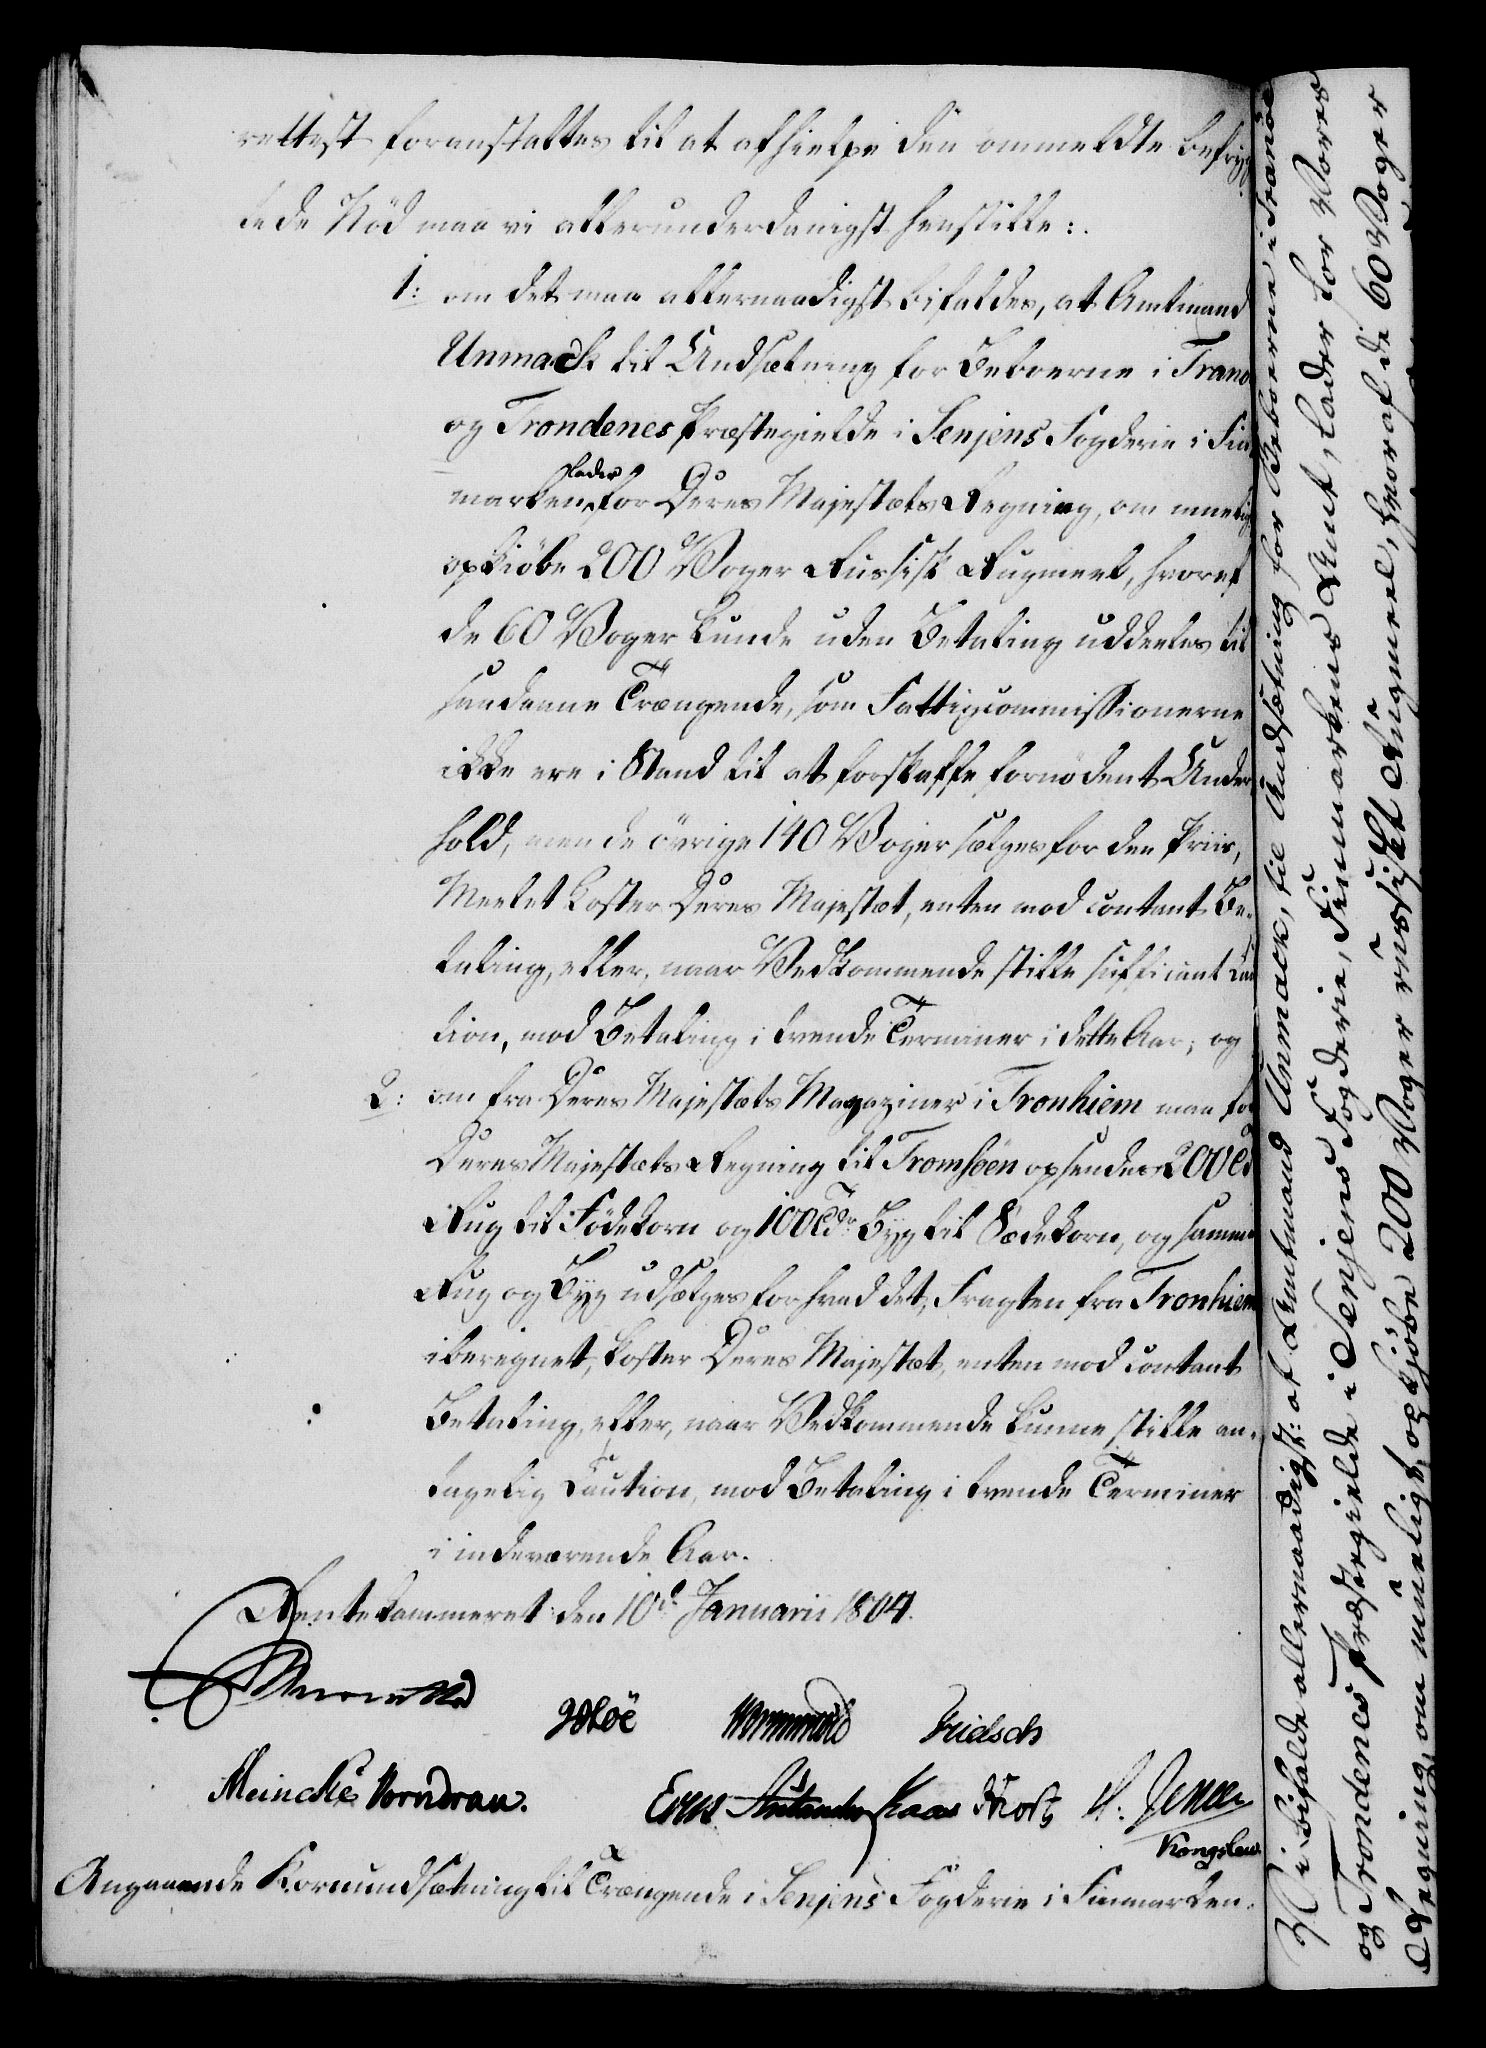 rettest foranstaltes til at afhielpe den ommeldte befryg-
tede Nød maa vi allerunderdanigst henstille:
1: om det maa allernaadigst bifaldes, at Amtmand
Unmack til Undsætning for Beboerne i Tranöe
og Trondenes Præstegielde i Senjens Fogderie i Fin-
marken, lader for Deres Majestæts Regning, om mueligt
opkiöbe 200 Voger Russisk Rugmeel, hvoraf
de 60 Voger kunde uden Betaling uddeeles til
saadanne Trængende, som Fattigcommissionerne
ikke ere i Stand til at forskaffe fornödent Under-
hold, men de övrige 140 Voger sælges for den Priis,
Meelet koster Deres Majestæt, enten mod contant Be-
taling, eller, naar Vedkommende stille sufficient Cau-
tion, mod Betaling i tvende Terminer i dette Aar; og
2: om fra Deres Majestæts Magaziner i Tronhiem maa for
Deres Majestæts Regning til Tromsöen opsendes 200 Tdr
Rug til Födekorn og 100 Tdr Byg til Sædekorn, og samme
Rug og Byg udsælges for hvad det, Fragten fra Tronhiem
iberegnet, koster Deres Majestæt, enten mod contant
Betaling, eller, naar Vedkommende kunne stille an-
tagelig Caution, mod Betaling i tvende Terminer
i indeværende Aar.
Rentekammeret den 10de Januarii 1804.
Wormskiold Fridsch
Meincke Vorndran. Kaas Krog H: Jensen
Kongslew
Angaaende Kornundsætning til Trængende i Senjens Fögderie i Finmarken.
Vi bifalde allernaadigst: at Amtmand Unmack, til Undsætning for Beboerne i Tranöe
og Trondenes Præstegielde i Senjens Fogderie, Finmarkens Amt, lader for Vores
Regning, om mueligt, opkjöbe 200 Voger russiskt Rugmeel, hvoraf de 60 Voger